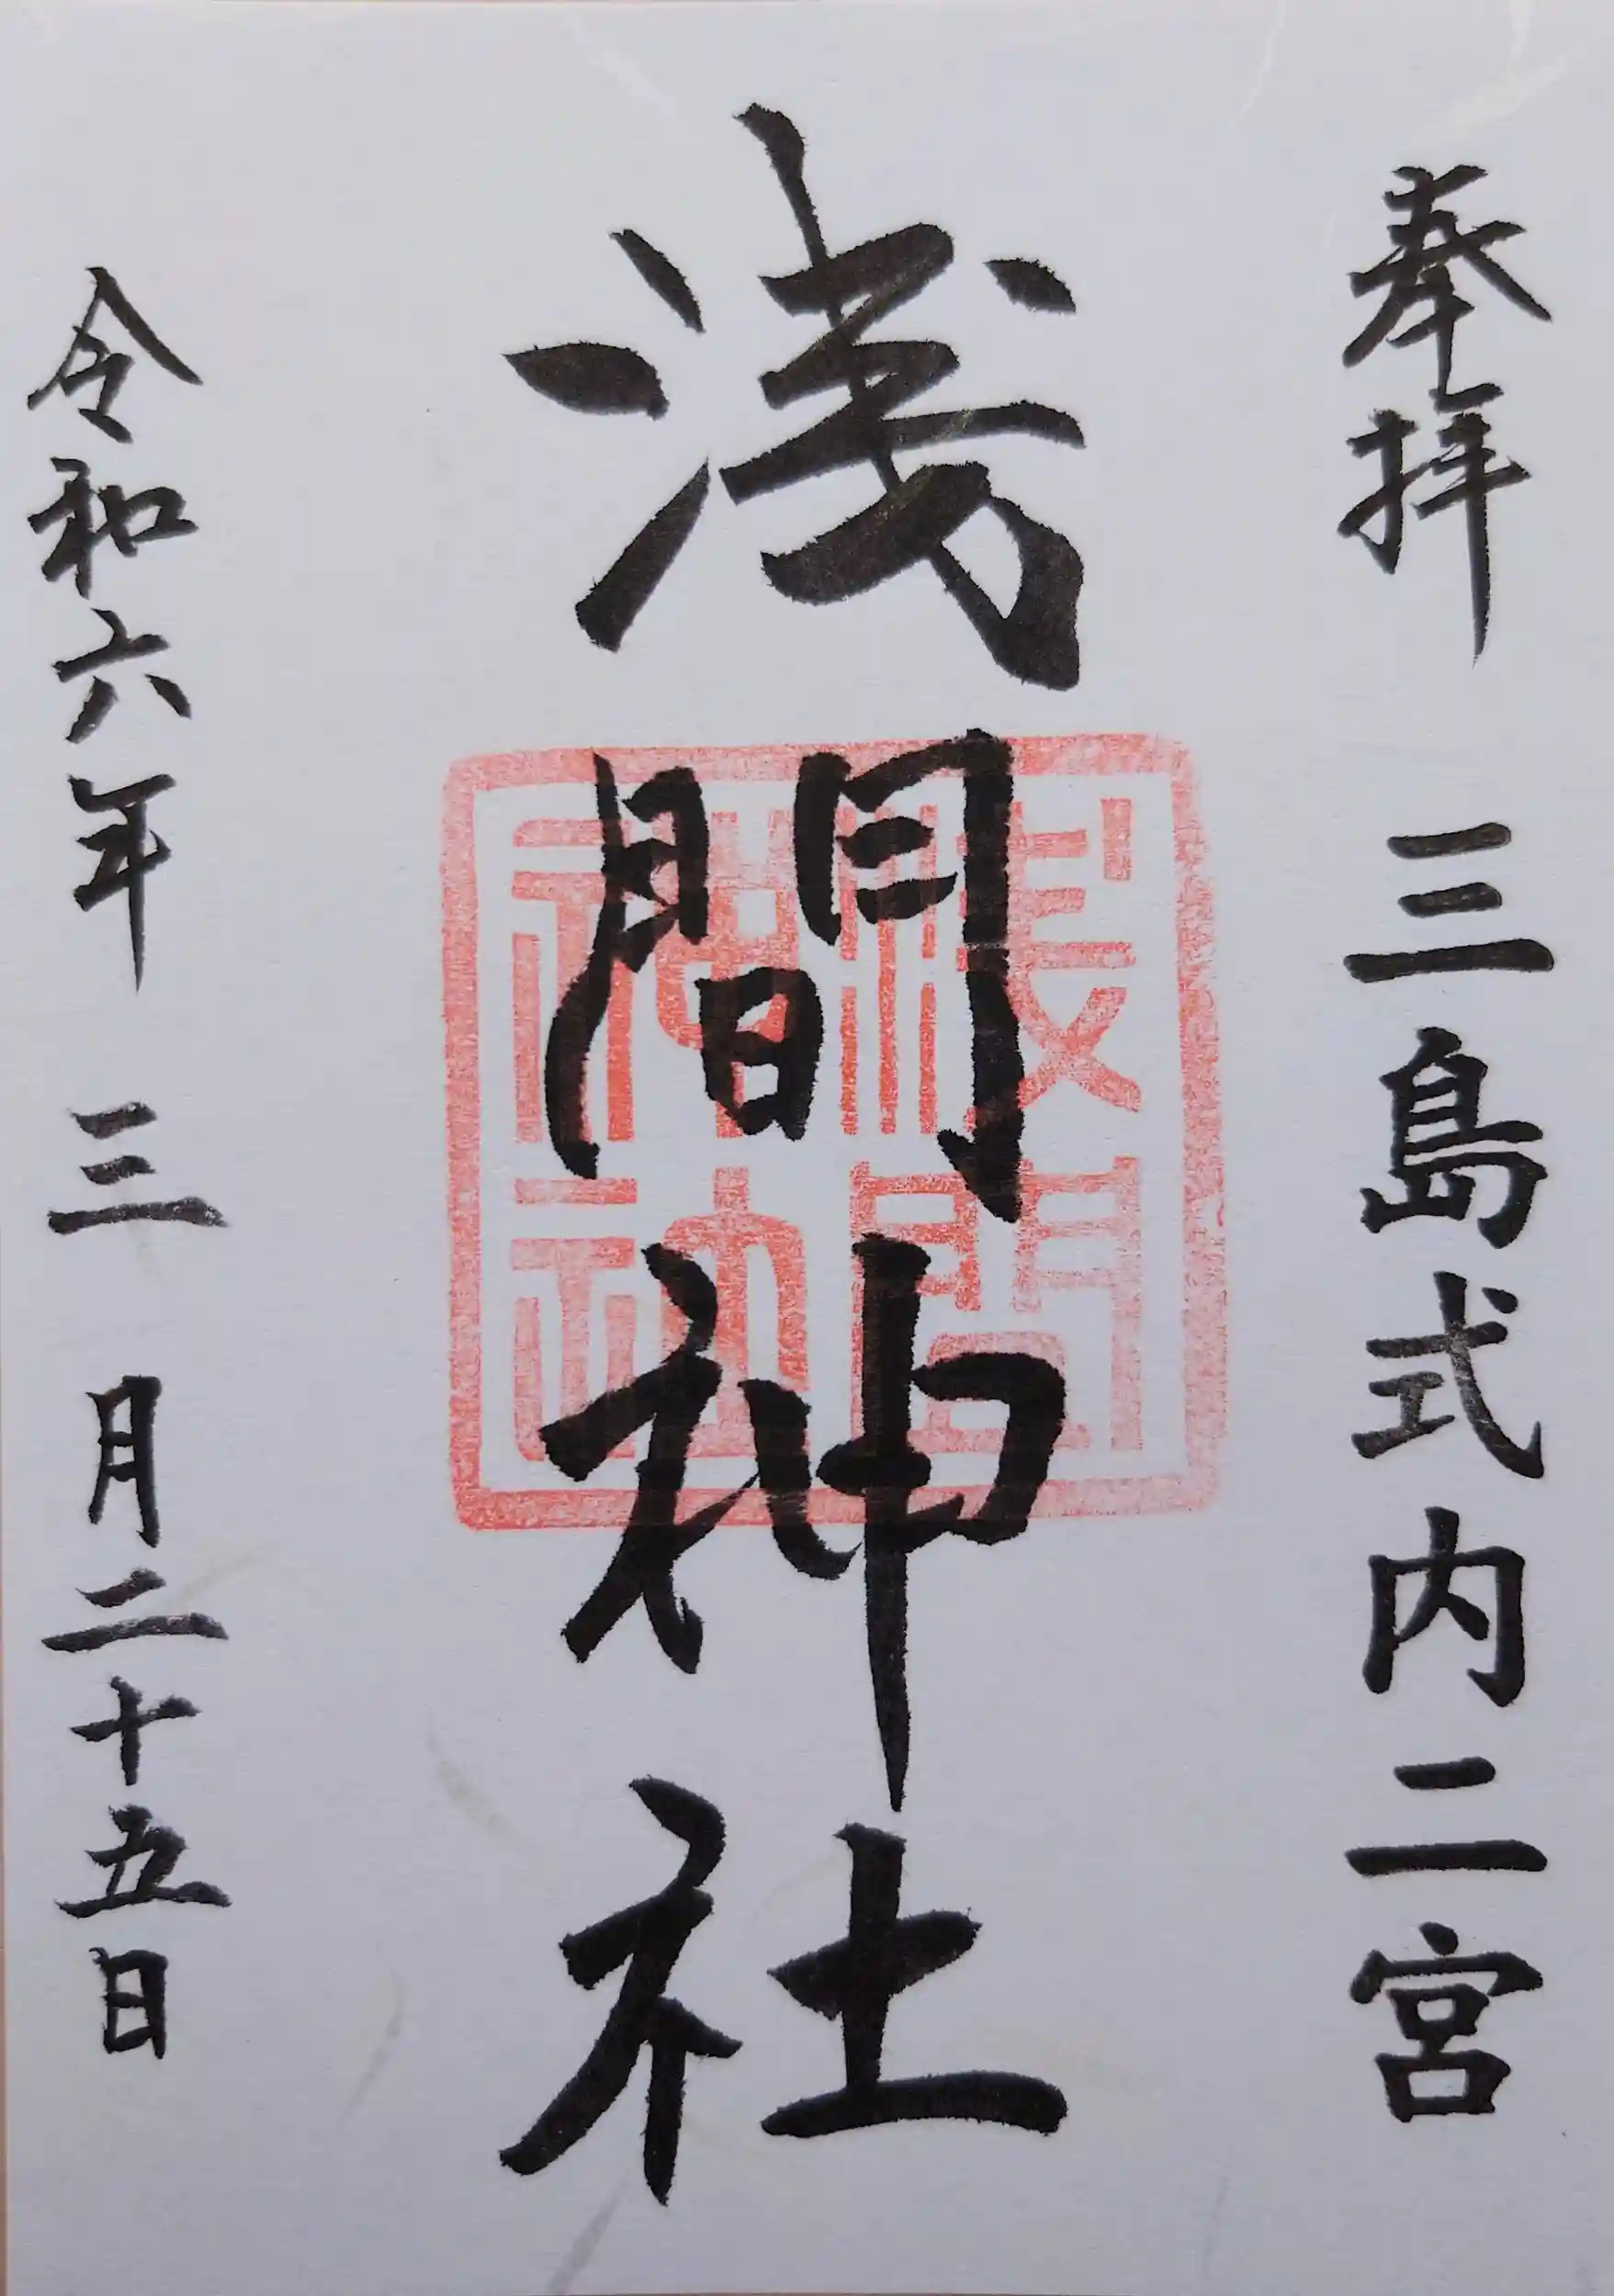 奉拝 三島式内二宮
浅間神社
浅間
神社
令和六年 三 月二十五日